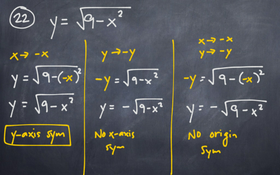 22 y = √9-x²
x → -x
y = √9-(-x)²
y = √9-x²
y-axis sym
y → -y
-y = √9-x²
y = -√9-x²
No x-axis
sym
x → -x
y → -y
-y = √9-(-x)²
y = -√9-x²
No origin
sym